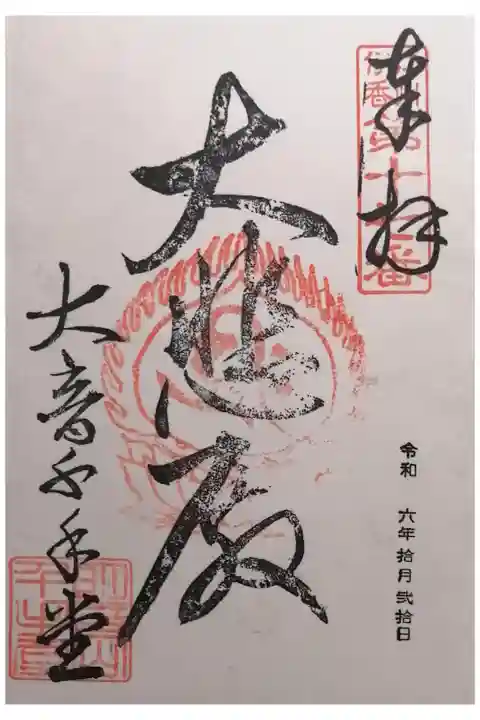 奉拝
大悲殿
大音千手堂
令和 六年拾月弐拾日